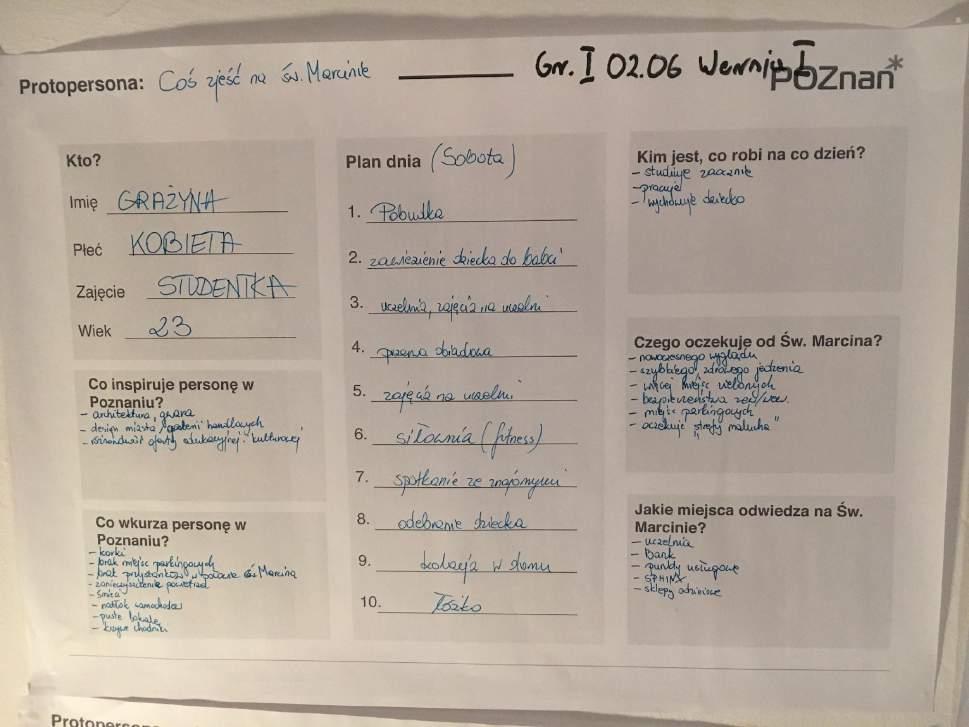 Protopersona: Coś zjeść na św. Marcinie
Gr. I 02.06 Wersja I
POZnan*
Kto?
Imię GRAŻYNA
Płeć KOBIETA
Zajęcie STUDENTKA
Wiek 23
Co inspiruje personę w
Poznaniu?
- architektura, gwara
- design miasta, galerii handlowych
- oferty edukacyjnej i kulturowej
Co wkurza personę w
Poznaniu?
- korki
- brak miejsc parkingowych
- brak przystanków w Św Marcina
- zanieczyszczenie powietrza
- śmieci
- natłok samochodów
- puste lokale
- krzywe chodniki
Plan dnia (Sobota)
1. Pobudka
2. zawiezienie dziecka do babci
3. uczelnia, zajęcia na uczelni
4. przerwa obiadowa
5. zajęcia na uczelni
6. siłownia (fitness)
7. spotkanie ze znajomymi
8. odebranie dziecka
9. kolacja w domu
10. łóżko
Kim jest, co robi na co dzień?
- studiuje zaocznie
- pracuje
- wychowuje dziecko
Czego oczekuje od Św. Marcina?
- nowoczesnego wyglądu
- szybkiego, zdrowego jedzenia
- więcej miejsc zielonych
- bezpieczeństwa
- miejsc parkingowych
- oczekuje "strefy malucha"
Jakie miejsca odwiedza na Św.
Marcinie?
- uczelnia
- bank
- punkty usługowe
- SPHINX
- sklepy odzieżowe